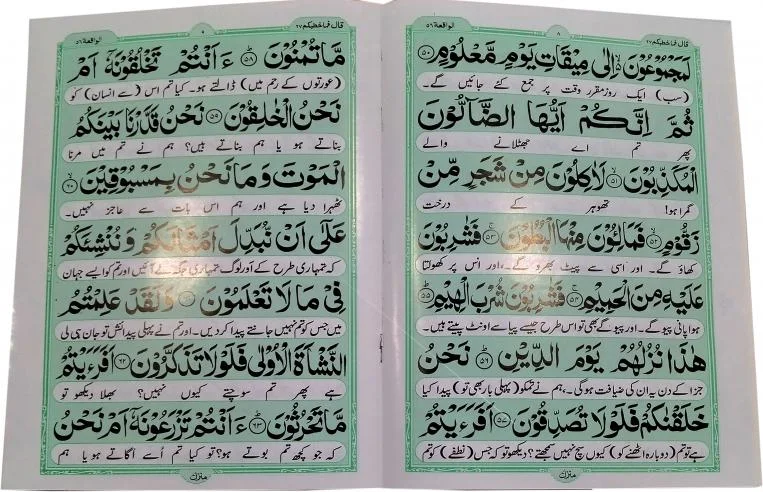 قال فما خطبكم ٢٧
٨
الواقعة ٥٦
لَمَجْمُوْعُوْنَ اِلٰى مِيْقَاتِ يَوْمٍ مَّعْلُوْمٍ ۝٥٠
(سب) ایک روز مقرر وقت پر جمع کئے جائیں گے۔
ثُمَّ اِنَّكُمْ اَيُّهَا الضَّآلُّوْنَ
پھر تم اے جھٹلانے والے
الْمُكَذِّبُوْنَ ۝٥١ لَاٰكِلُوْنَ مِنْ شَجَرٍ مِّنْ
گمراہو! تھوہر کے درخت
زَقُّوْمٍ ۝٥٢ فَمَالِـُٔوْنَ مِنْهَا الْبُطُوْنَ ۝٥٣ فَشٰرِبُوْنَ
کھاؤ گے۔ اور اسی سے پیٹ بھرو گے۔ اور اس پر کھولتا
عَلَيْهِ مِنَ الْحَمِيْمِ ۝٥٤ فَشٰرِبُوْنَ شُرْبَ الْهِيْمِ ۝٥٥
ہوا پانی پیو گے۔ اور پیو گے بھی تو اس طرح جیسے پیاسے اونٹ پیتے ہیں۔
هٰذَا نُزُلُهُمْ يَوْمَ الدِّيْنِ ۝٥٦ نَحْنُ
جزا کے دن یہ ان کی ضیافت ہوگی۔ ہم نے تمکو (پہلی بار بھی تو) پیدا کیا
خَلَقْنٰكُمْ فَلَوْلَا تُصَدِّقُوْنَ ۝٥٧ اَفَرَءَيْتُمْ
ہے تو تم (دوبارہ اٹھنے کو) کیوں سچ نہیں سمجھتے؟ دیکھو تو کہ جس (نطفے) کو تم
منزل
قال فما خطبكم ٢٧
٩
الواقعة ٥٦
مَّا تُمْنُوْنَ ۝٥٨ ءَاَنْتُمْ تَخْلُقُوْنَهٗٓ اَمْ
(عورتوں کے رحم میں) ڈالتے ہو۔ کیا تم اس (سے انسان) کو
نَحْنُ الْخٰلِقُوْنَ ۝٥٩ نَحْنُ قَدَّرْنَا بَيْنَكُمُ
بناتے ہو یا ہم بناتے ہیں؟ ہم نے تم میں مرنا
الْمَوْتَ وَمَا نَحْنُ بِمَسْبُوْقِيْنَ ۝٦٠
ٹھہرا دیا ہے اور ہم اس بات سے عاجز نہیں۔
عَلٰٓى اَنْ نُّبَدِّلَ اَمْثَالَكُمْ وَنُنْشِئَكُمْ
کہ تمہاری طرح کے اور لوگ تمہاری جگہ لے آئیں اور تم کو ایسے جہان
فِيْ مَا لَا تَعْلَمُوْنَ ۝٦١ وَلَقَدْ عَلِمْتُمُ
میں جس کو تم نہیں جانتے پیدا کر دیں۔ اور تم نے پہلی پیدائش تو جان ہی لی
النَّشْاَةَ الْاُوْلٰى فَلَوْلَا تَذَكَّرُوْنَ ۝٦٢ اَفَرَءَيْتُمْ
ہے پھر تم سوچتے کیوں نہیں؟ بھلا دیکھو تو
مَّا تَحْرُثُوْنَ ۝٦٣ ءَاَنْتُمْ تَزْرَعُوْنَهٗٓ اَمْ نَحْنُ
کہ جو کچھ تم بوتے ہو؟ تو کیا تم اُسے اُگاتے ہو یا ہم
منزل